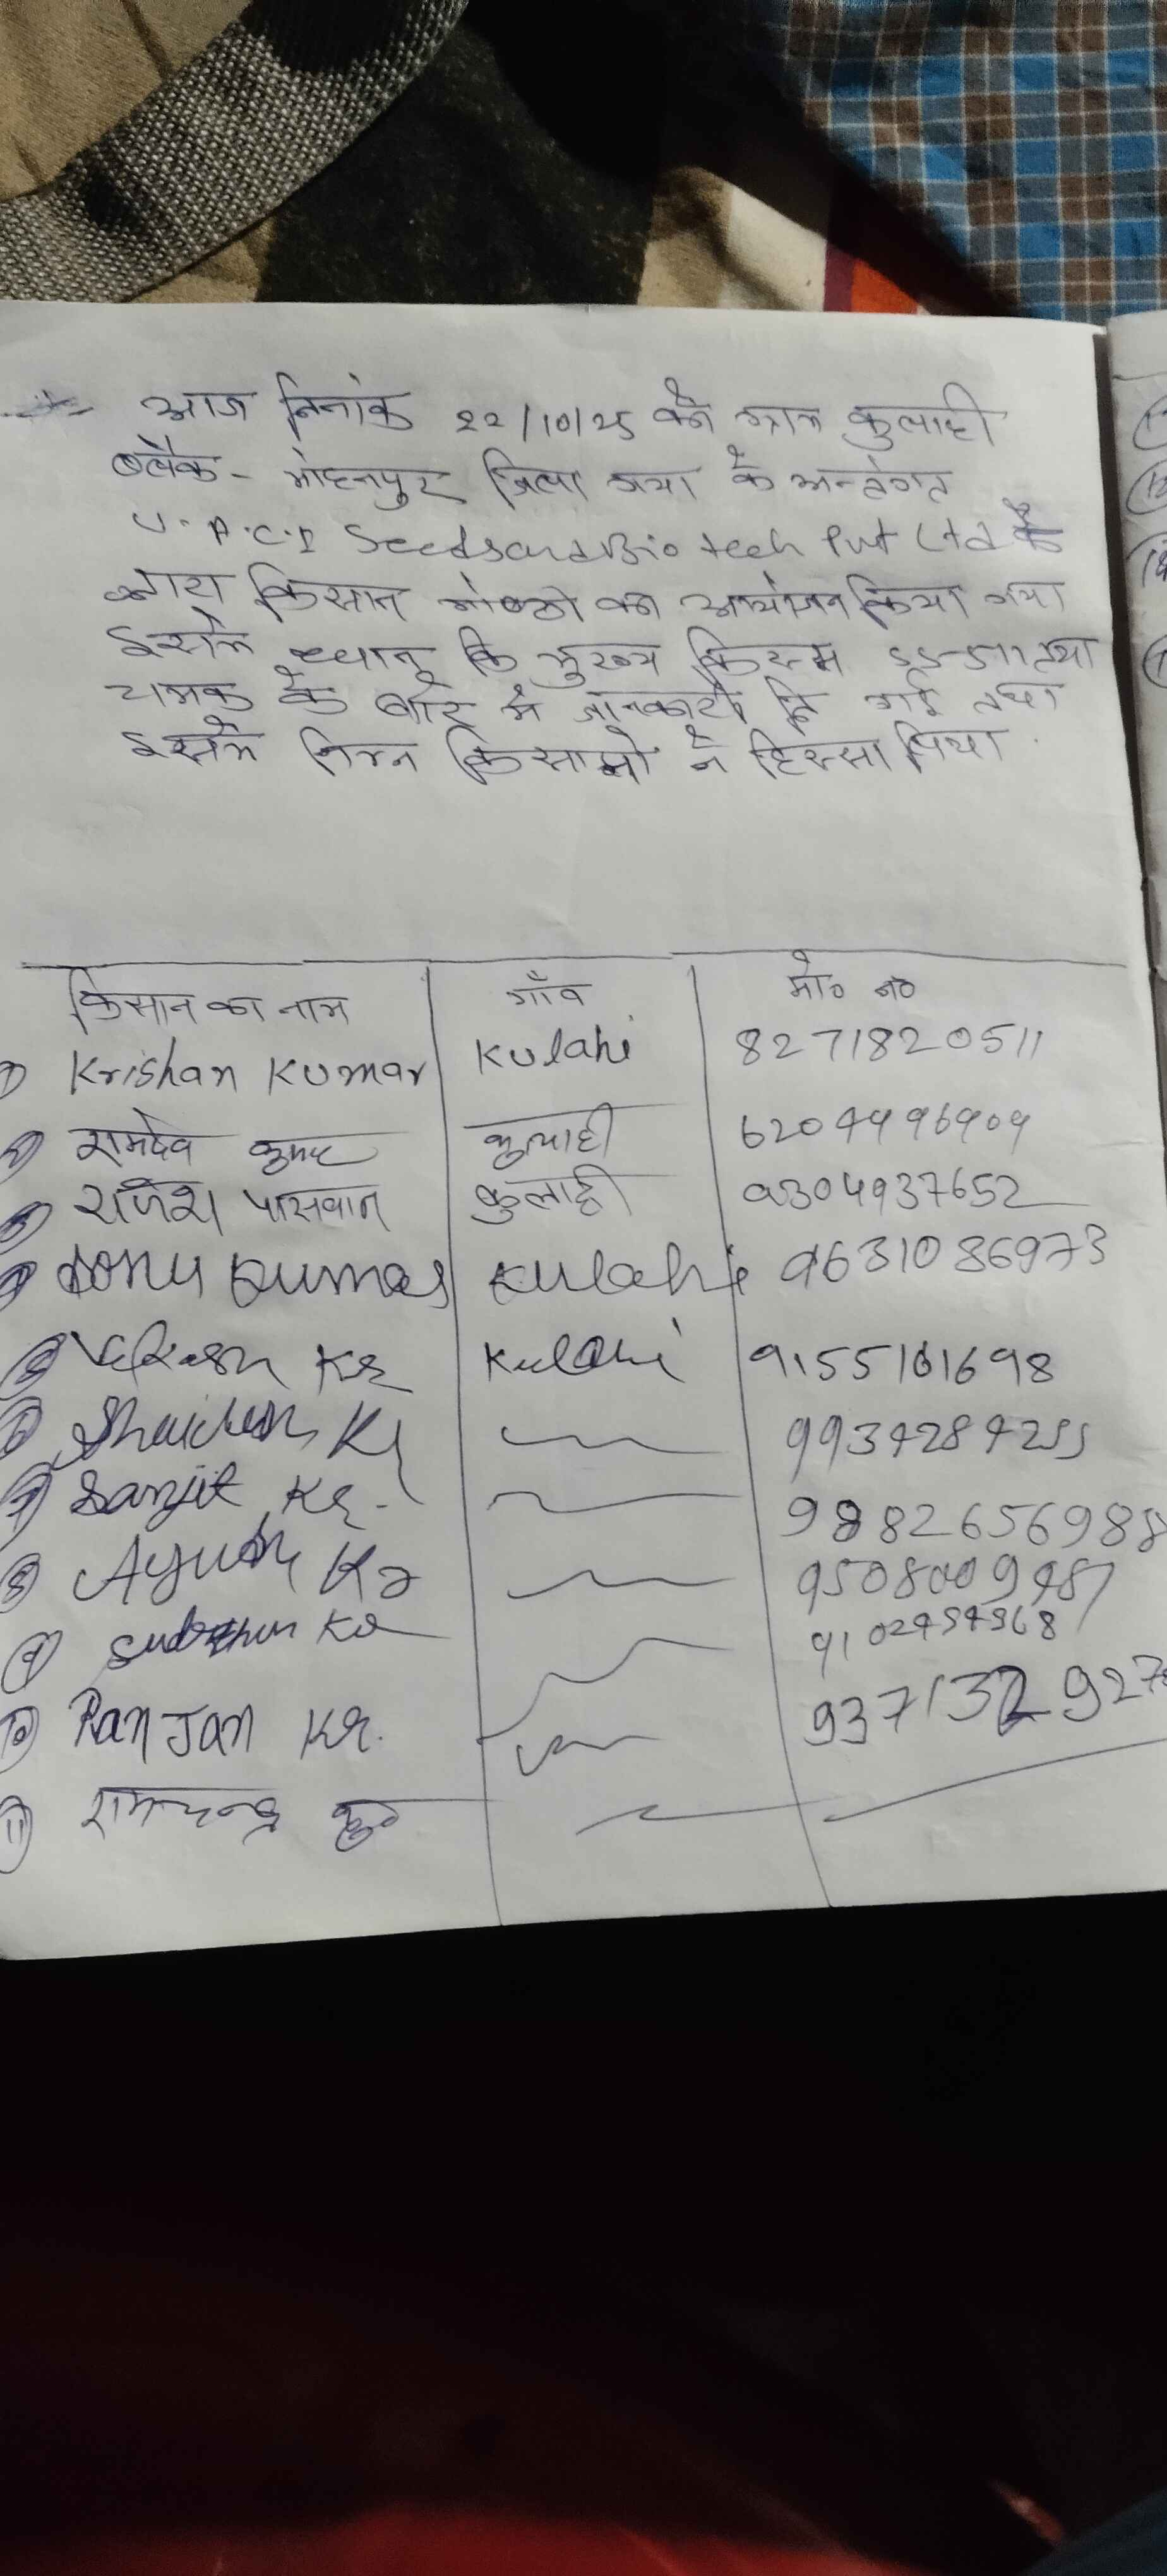 आज दिनांक 22/10/25 को ग्राम कुलाही
ब्लैक - मोहनपुर जिला गया के अन्तंगत
U.P.C.I Seedsand Bio tech Pvt Ltd के
द्वारा किसान गोष्ठी का आयोजन किया गया
इसमे धान कि मुख्य किस्म 55-511 तथा
चमक के बारे मे जानकारी दि गई तथा
इसमे निम्न किसानो ने हिस्सा लिया.
किसान का नाम गाँव मो० न०
① Krishan Kumar Kulahi 8271820511
② रामदेव कुमार कुलाही 6204496909
③ राजेश पासवान कुलाही 9304937652
④ Sonu Kumar Kulahi 9631086973
⑤ Kr Kulahi 9155101698
⑥ Kr 9934284255
⑦ Sanjit Kr. 9882656988
⑧ Ayush Kr
⑨ Kr
⑩ Ranjan Kr.
⑪ रामचन्द्र कु०